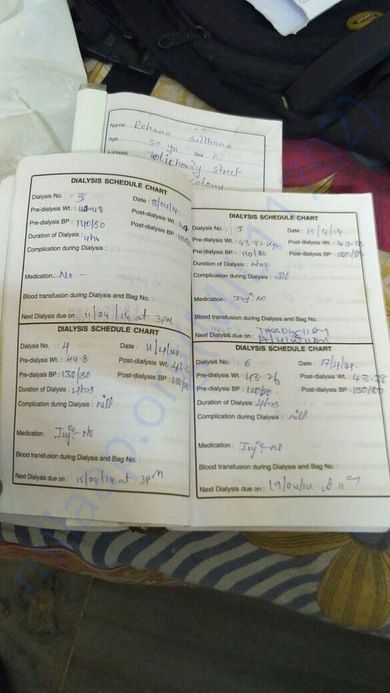 Name Rehana Sulthana
Age 50 yr Sex
street
colony
DIALYSIS SCHEDULE CHART
Dialysis No. : 3 Date : 8/04/14
Pre-dialysis Wt. : Post-dialysis Wt. :
Pre-dialysis BP : 140/80 Post-dialysis BP :
Duration of Dialysis : 4hr
Complication during Dialysis :
Medication : No -
Blood transfusion during Dialysis and Bag No. :
Next Dialysis due on : 11/04/14 at 3pm
DIALYSIS SCHEDULE CHART
Dialysis No. : 4 Date : 11/4/14
Pre-dialysis Wt. : 44.8 Post-dialysis Wt. :
Pre-dialysis BP : 130/80 Post-dialysis BP :
Duration of Dialysis : 4hrs
Complication during Dialysis : nill
Medication : Inj:- no
Blood transfusion during Dialysis and Bag No. :
Next Dialysis due on : 15/04/14 at 3pm
DIALYSIS SCHEDULE CHART
Dialysis No. : 5 Date : 15/4/14
Pre-dialysis Wt. : Post-dialysis Wt. :
Pre-dialysis BP : 110/80 Post-dialysis BP :
Duration of Dialysis : 4hrs
Complication during Dialysis : nill
Medication : Inj: No
Blood transfusion during Dialysis and Bag No. :
Next Dialysis due on :
DIALYSIS SCHEDULE CHART
Dialysis No. : 6 Date : 17/4/14
Pre-dialysis Wt. : 43.26 Post-dialysis Wt. : 43.28
Pre-dialysis BP : Post-dialysis BP : 130/80
Duration of Dialysis : 4hrs
Complication during Dialysis : nill
Medication : Inj:- no
Blood transfusion during Dialysis and Bag No. :
Next Dialysis due on : 19/04/14 at